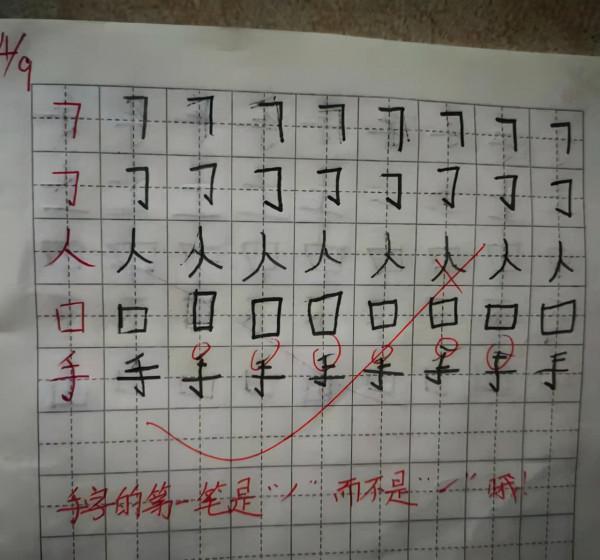 4/9
㇕ ㇕ ㇕ ㇕ ㇕ ㇕ ㇕ ㇕ ㇕
𠃌 𠃌 𠃌 𠃌 𠃌 𠃌 𠃌 𠃌 𠃌
人 人 人 人 人 人 人 人 人
口 口 口 口 口 口 口 口 口
手 手 手 手 手 手 手 手 手
手字的第一笔是“㇒”而不是“㇀”哦!